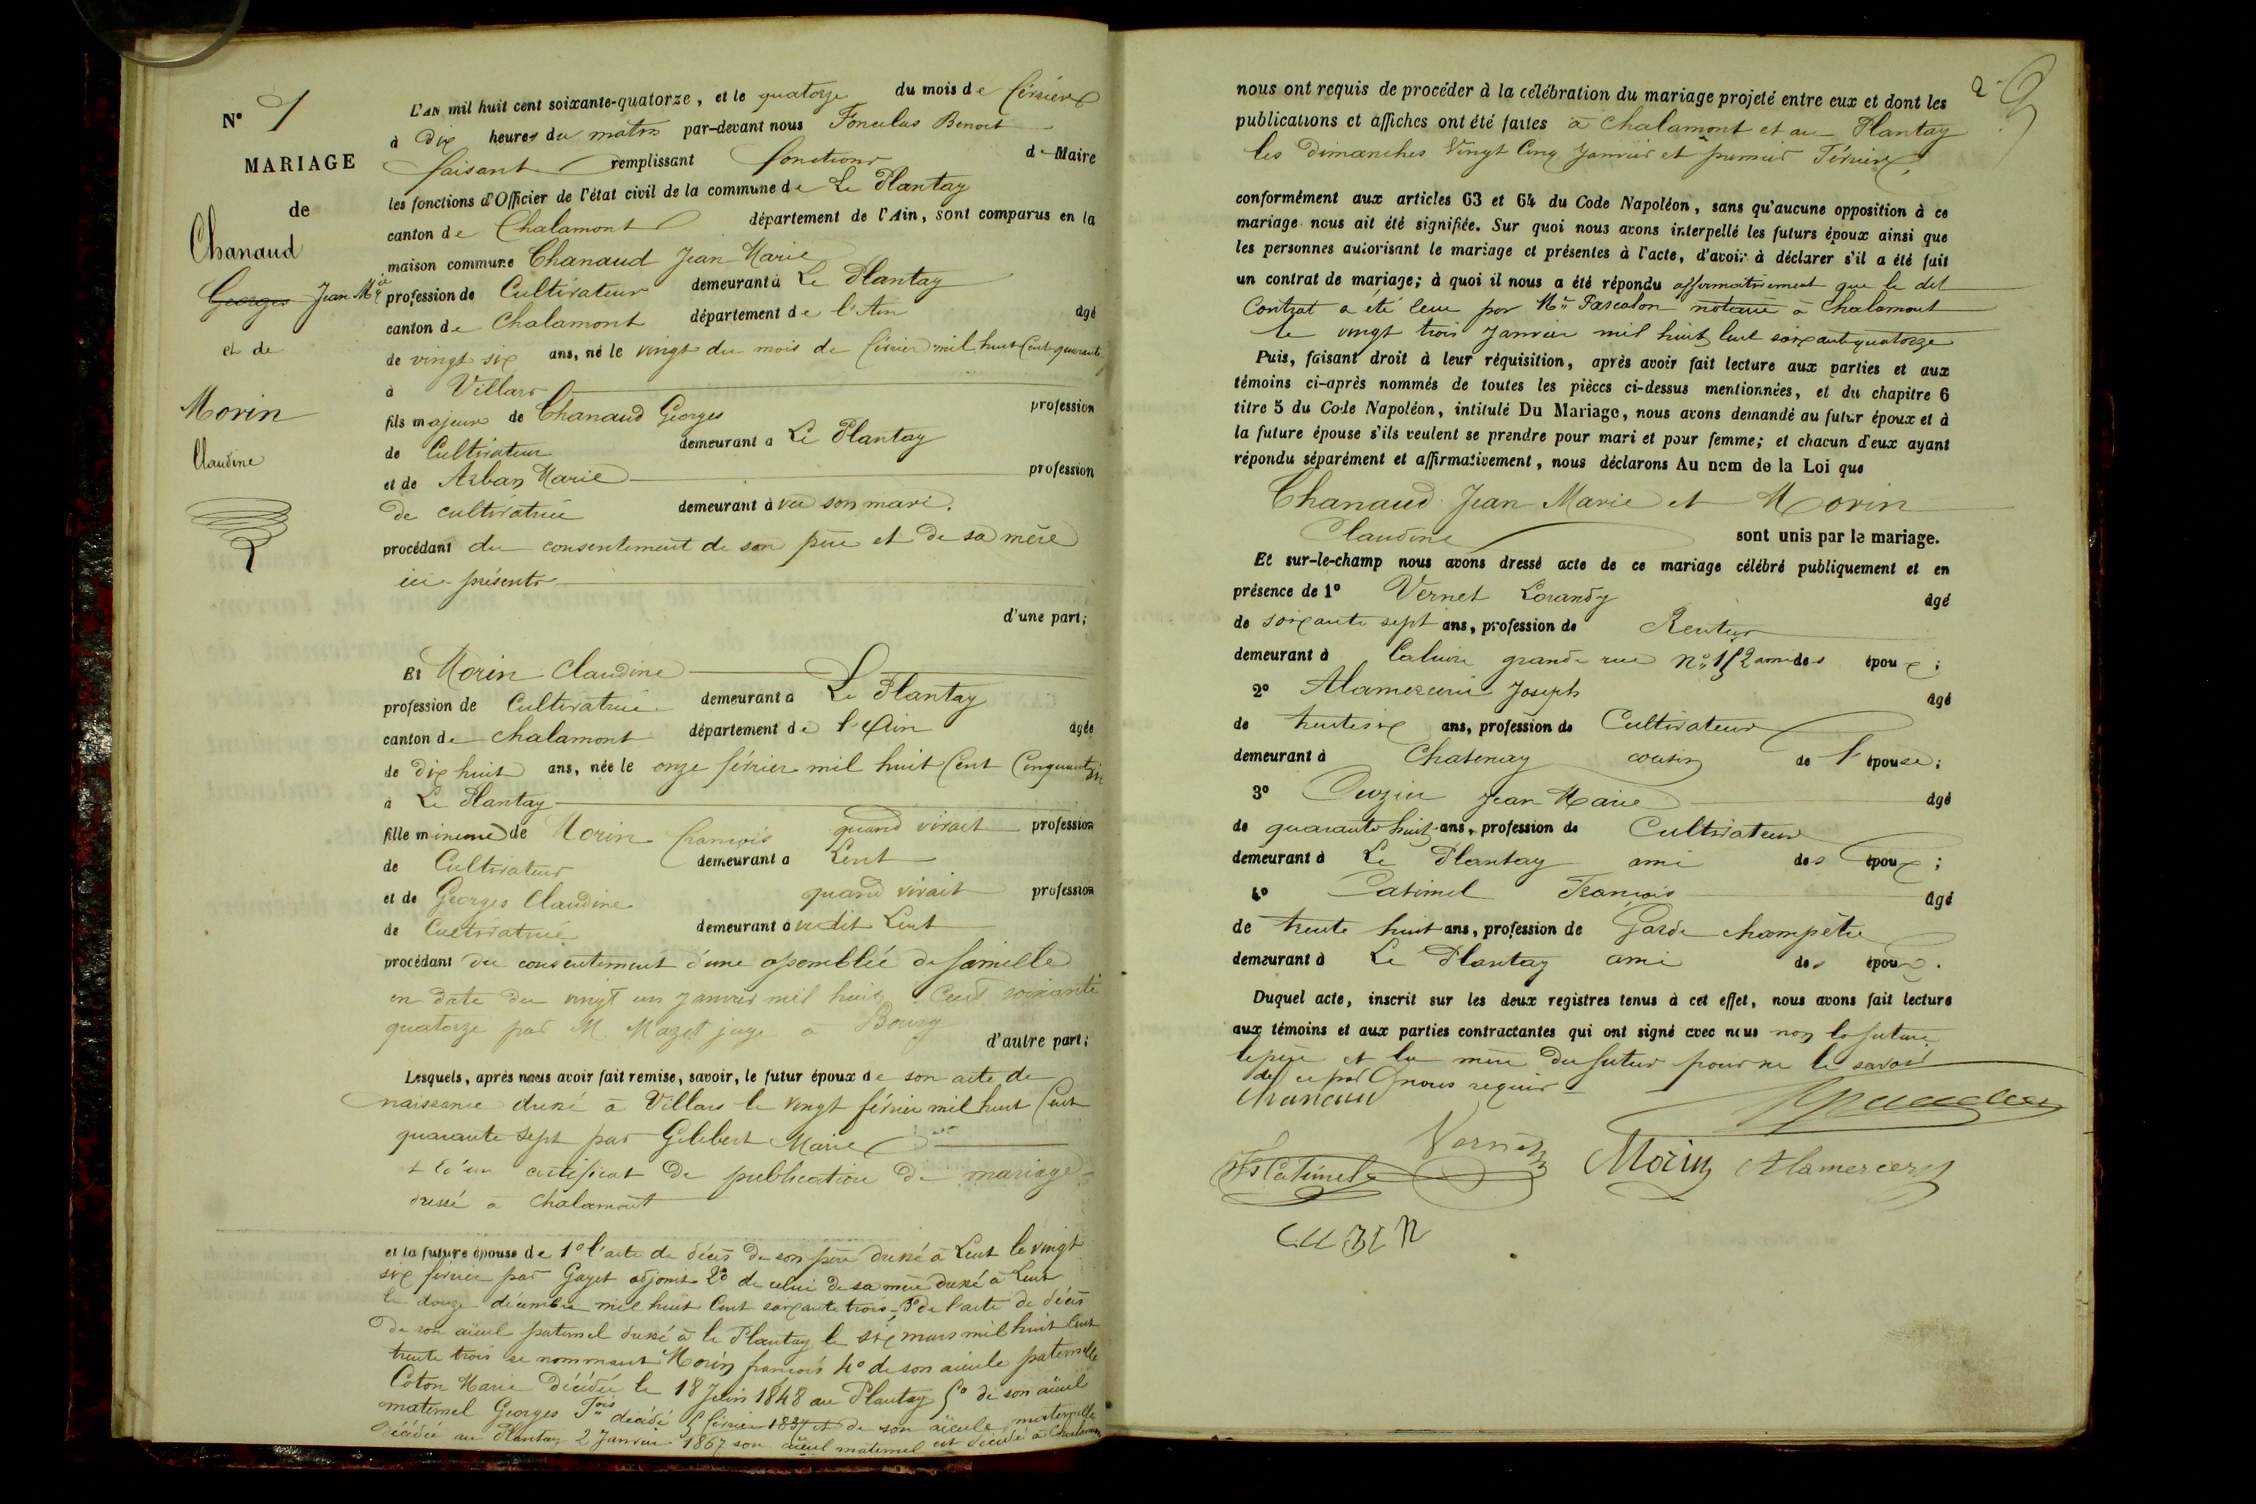 N° 1
MARIAGE
de
Chanaud
Georges Jean Mie
et de
Morin
Claudine
L'AN mil huit cent soixante-quatorze, et le quatorze du mois de février
à dix heures du matin par-devant nous Benoit
faisant remplissant fonctions de Maire
les fonctions d'Officier de l'état civil de la commune de Le Plantay
canton de Chalamont département de l'Ain, sont comparus en la
maison commune Chanaud Jean Marie
profession de Cultivateur demeurant à Le Plantay
canton de Chalamont département de l'Ain âgé
de vingt six ans, né le vingt du mois de février mil huit cent quarante
à Villars
fils majeur de Chanaud Georges profession
de Cultivateur demeurant à Le Plantay
et de Arban Marie profession
de cultivatrice demeurant à son mari.
procédant du consentement de son père et de sa mère
ici présents
d'une part;
Et Morin Claudine
profession de Cultivatrice demeurant à Le Plantay
canton de chalamont département de l'Ain âgée
de dix huit ans, née le onze février mil huit cent cinquante six
à Le Plantay
fille mineure de Morin françois quand vivait profession
de Cultivateur demeurant à Lent
et de Georges Claudine quand vivait profession
de Cultivatrice demeurant à dit Lent
procédant du consentement d'une assemblée de famille
en date du vingt un janvier mil huit cent soixante
quatorze par M. Mazet juge a Bourg
d'autre part;
Lesquels, après nous avoir fait remise, savoir, le futur époux de son acte de
naissance dressé à Villars le vingt février mil huit cent
quarante sept par Gilibert Marie
et d'un certificat de publication de mariage
dressé à Chalamont
et la future épouse de 1° l'acte de décès de son père dressé à Lent le vingt
six février par Gayet adjoint 2° de celui de sa mère dressé à Lent
le douze décembre mil huit cent soixante trois 3° de l'acte de décès
de son aïeul paternel dressé à le Plantay le six mars mil huit cent
trente trois se nommant Morin françois 4° de son aïeule paternelle
Coton Marie décédée le 18 Juin 1848 au Plantay 5° de son aïeul
maternel Georges Fois décédé 5 février et de son aïeule maternelle
décédée au Plantay 2 Janvier 1867 son aïeul maternel est décédé à
2
nous ont requis de procéder à la célébration du mariage projeté entre eux et dont les
publications et affiches ont été faites à Chalamont et au Plantay
les Dimanches vingt cinq Janvier et premier Février
conformément aux articles 63 et 64 du Code Napoléon, sans qu'aucune opposition à ce
mariage nous ait été signifiée. Sur quoi nous avons interpellé les futurs époux ainsi que
les personnes autorisant le mariage et présentes à l'acte, d'avoir à déclarer s'il a été fait
un contrat de mariage; à quoi il nous a été répondu affirmativement que le dit
Contrat a été par Me Pascalon notaire à Chalamont
le vingt trois Janvier mil huit cent soixante quatorze
Puis, faisant droit à leur réquisition, après avoir fait lecture aux parties et aux
témoins ci-après nommés de toutes les pièces ci-dessus mentionnées, et du chapitre 6
titre 5 du Code Napoléon, intitulé Du Mariage, nous avons demandé au futur époux et à
la future épouse s'ils veulent se prendre pour mari et pour femme; et chacun d'eux ayant
répondu séparément et affirmativement, nous déclarons Au nom de la Loi que
Chanaud Jean Marie et Morin
Claudine sont unis par le mariage.
Et sur-le-champ nous avons dressé acte de ce mariage célébré publiquement et en
présence de 1° Vernet âgé
de soixante sept ans, profession de Rentier
demeurant à Caluire grande rue ami des époux;
2° Alamercerie Joseph âgé
de trente six ans, profession de Cultivateur
demeurant à Chatenay cousin de l'épouse;
3° Cuzin Jean Marie âgé
de quarante huit ans, profession de Cultivateur
demeurant à Le Plantay ami des époux;
4° Catimel François âgé
de trente huit ans, profession de Garde champêtre
demeurant à Le Plantay ami des époux.
Duquel acte, inscrit sur les deux registres tenus à cet effet, nous avons fait lecture
aux témoins et aux parties contractantes qui ont signé avec nous non la future
le père et la mère du futur pour ne le savoir
de ce par nous requis
Chanaud
Vernet
Fs Catimel Morin Alamercery
CUZIN